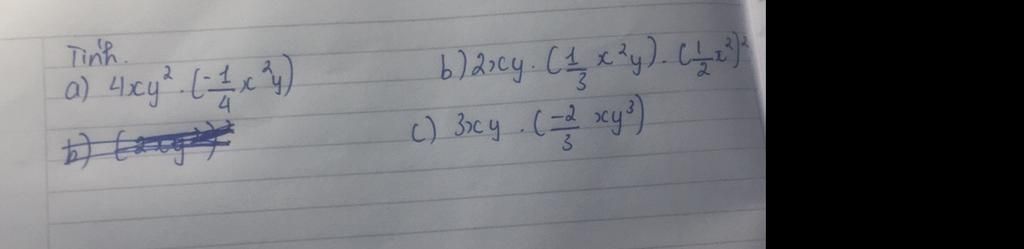 Tính.
a) 4xy² . (-1/4 x²y)
b) 2xy . (1/3 x²y) . (1/2 x²)²
c) 3xy . (-2/3 xy³)